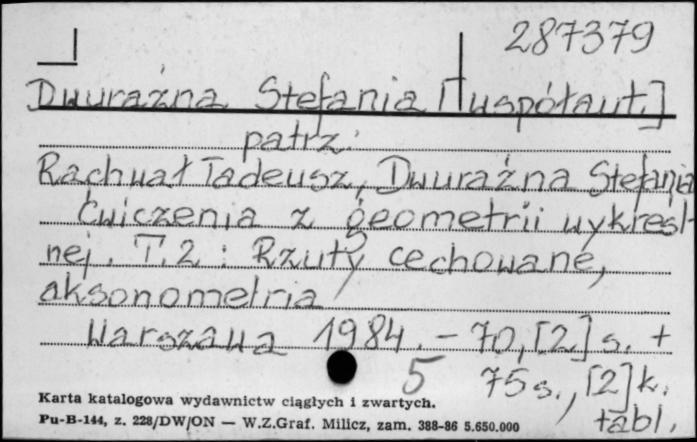 287379
Dwuraźna Stefania [współaut.]
patrz:
Rachwał Tadeusz, Dwuraźna Stefania
Ćwiczenia z geometrii wykreśl-
nej. T.2 : Rzuty cechowane,
aksonometria
Warszawa 1984. – 70, [2] s. +
5 75 s., [2] k.
tabl.
Karta katalogowa wydawnictw ciągłych i zwartych.
Pu-B-144, z. 228/DW/ON — W.Z.Graf. Milicz, zam. 388-86 5.650.000